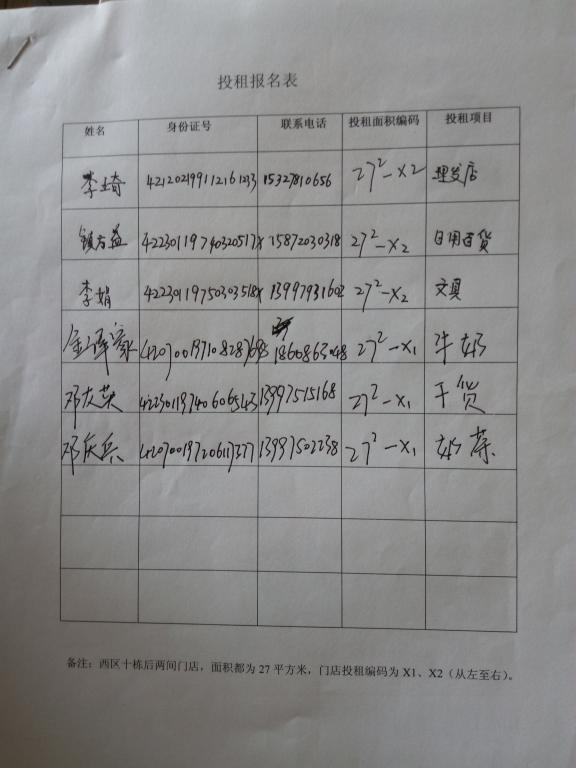 投租报名表
姓名 身份证号 联系电话 投租面积编码 投租项目
李 琦 421202199112161233 15327810656 27²-X2 理发店
镇方益 42230119740320517X 15872030318 27²-X2 日用百货
李娟 42230119750303518X 13997931602 27²-X2 文具
金 27²-X1 牛奶
邓友英 422301197406065143 13997515168 27²-X1 干货
邓庆兵 13997502238 27²-X1 奶茶
备注：西区十栋后两间门店，面积都为27平方米，门店投租编码为X1、X2（从左至右）。